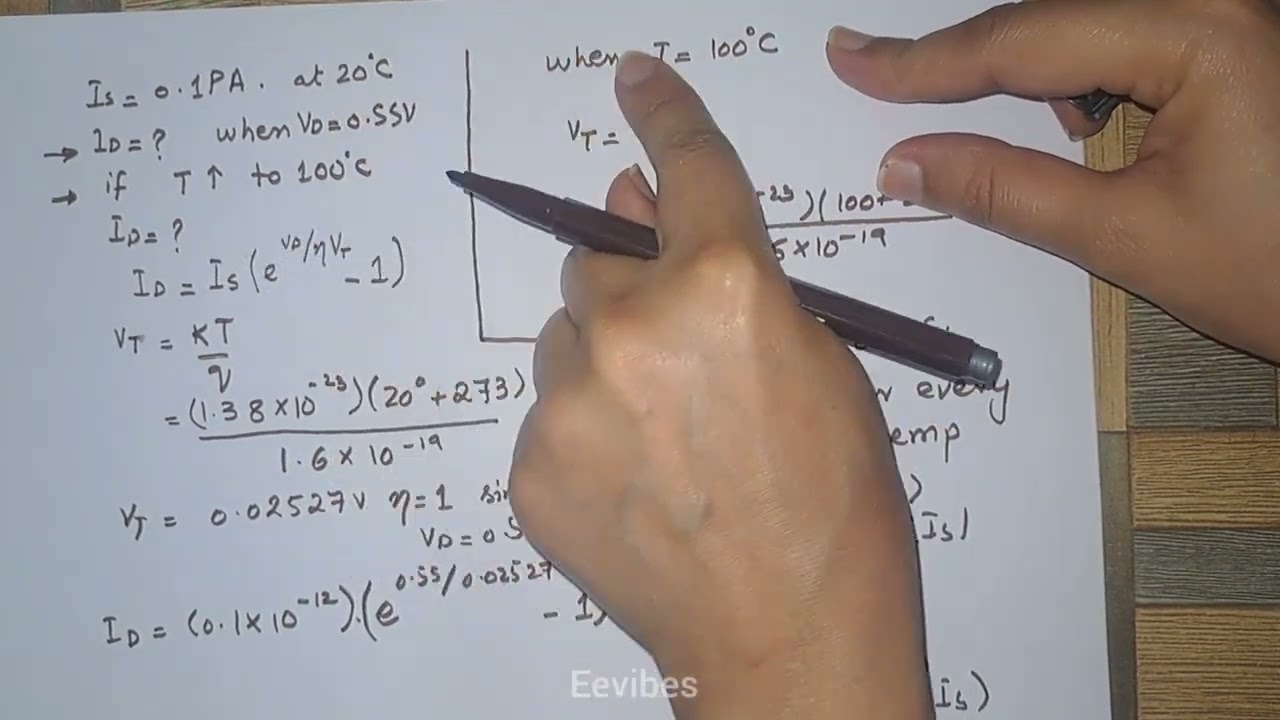 Is = 0.1PA. at 20°C
→ ID = ? when VD = 0.55V
→ if T ↑ to 100°C
ID = ?
ID = Is (e^VD/ηVT - 1)
VT = KT
q
= (1.38 × 10^-23)(20° + 273)
1.6 × 10^-19
VT = 0.02527V η = 1
VD = 0
ID = (0.1 × 10^-12).(e^0.55/0.02527 - 1)
when T = 100°C
VT =
-23)(100+
6 × 10^-19
every
emp
)
Is)
Is)
Eevibes